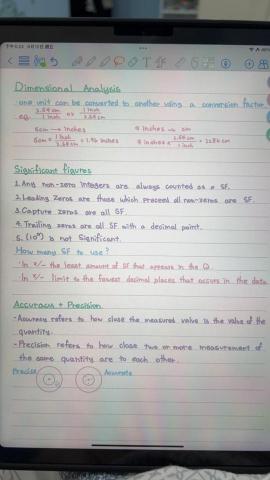 Dimensional Analysis
one unit can be converted to another using a conversion factor
eg. 2.54 cm / 1 inch or 1 inch / 2.54 cm
5cm → inches
9 inches → cm
5cm × 1 inch / 2.54 cm = 1.96 inches
9 inches × 2.54 cm / 1 inch = 22.86 cm
Significant figures
1. Any non-zero integers are always counted as a SF.
2. Leading Zeros are those which preceed all non-zeros are SF.
3. Capture zeros are all SF.
4. Trailing zeros are all SF with a decimal point.
5. (10ⁿ) is not significant.
How many SF to use?
In ×/÷ the least amount of SF that appears in the Q.
In +/- limit to the fewest decimal places that occurs in the data
Accuracy + Precision
-Accuracy refers to how close the measured value is the value of the
quantity.
-Precision refers to how close two or more measurement of
the same quantity are to each other.
Precise
Accurate